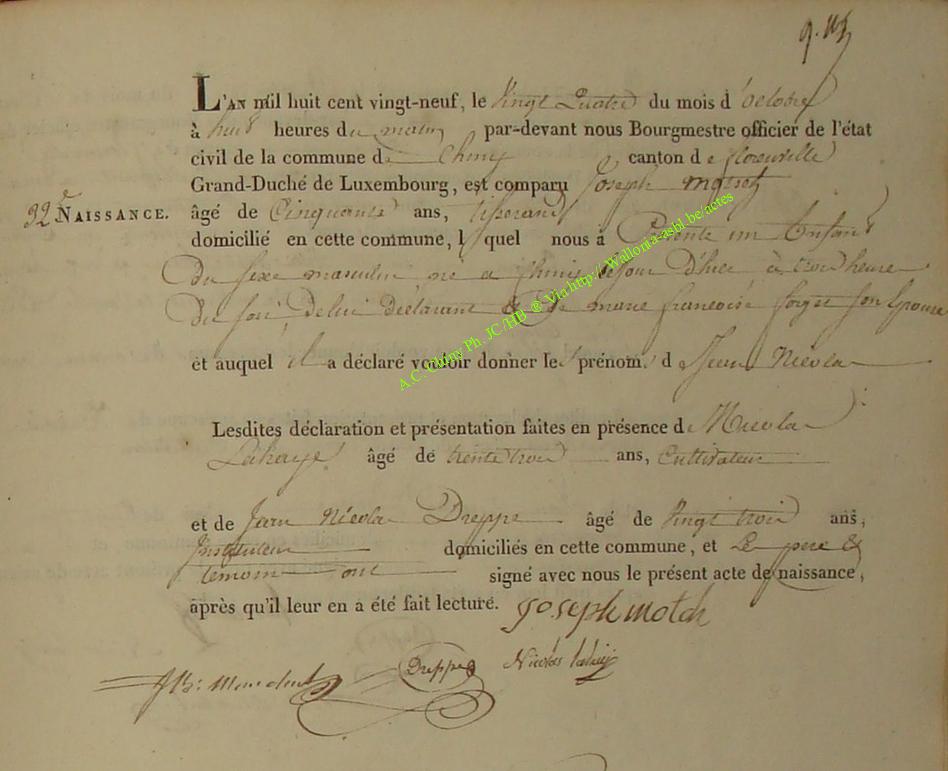 L'AN mil huit cent vingt-neuf, le Vingt Quatre du mois d'octobre
à huit heures du matin par-devant nous Bourgmestre officier de l'état
civil de la commune de Chiny canton de florenville
Grand-Duché de Luxembourg, est comparu Joseph
32e NAISSANCE. âgé de Cinquante ans, tisserand
domicilié en cette commune, lequel nous a Présenté un Enfant
Du sexe masculin né a Chiny le jour D'hier à trois heure
Du soir De lui déclarant & De marie francoise forget son Epouse
et auquel il a déclaré vouloir donner les prénoms de Jean Nicolas
Lesdites déclaration et présentation faites en présence de Nicolas
Lahaye âgé de trente trois ans, Cultivateur
et de Jean Nicolas Dreppe âgé de Vingt trois ans,
Instituteur domiciliés en cette commune, et Le pere &
temoins ont signé avec nous le présent acte de naissance,
après qu'il leur en a été fait lecture. Joseph motch
Dreppe Nicolas lahaye
A.C. Chiny Ph. JC/HB ® Via http://Wallonia-asbl.be/actes